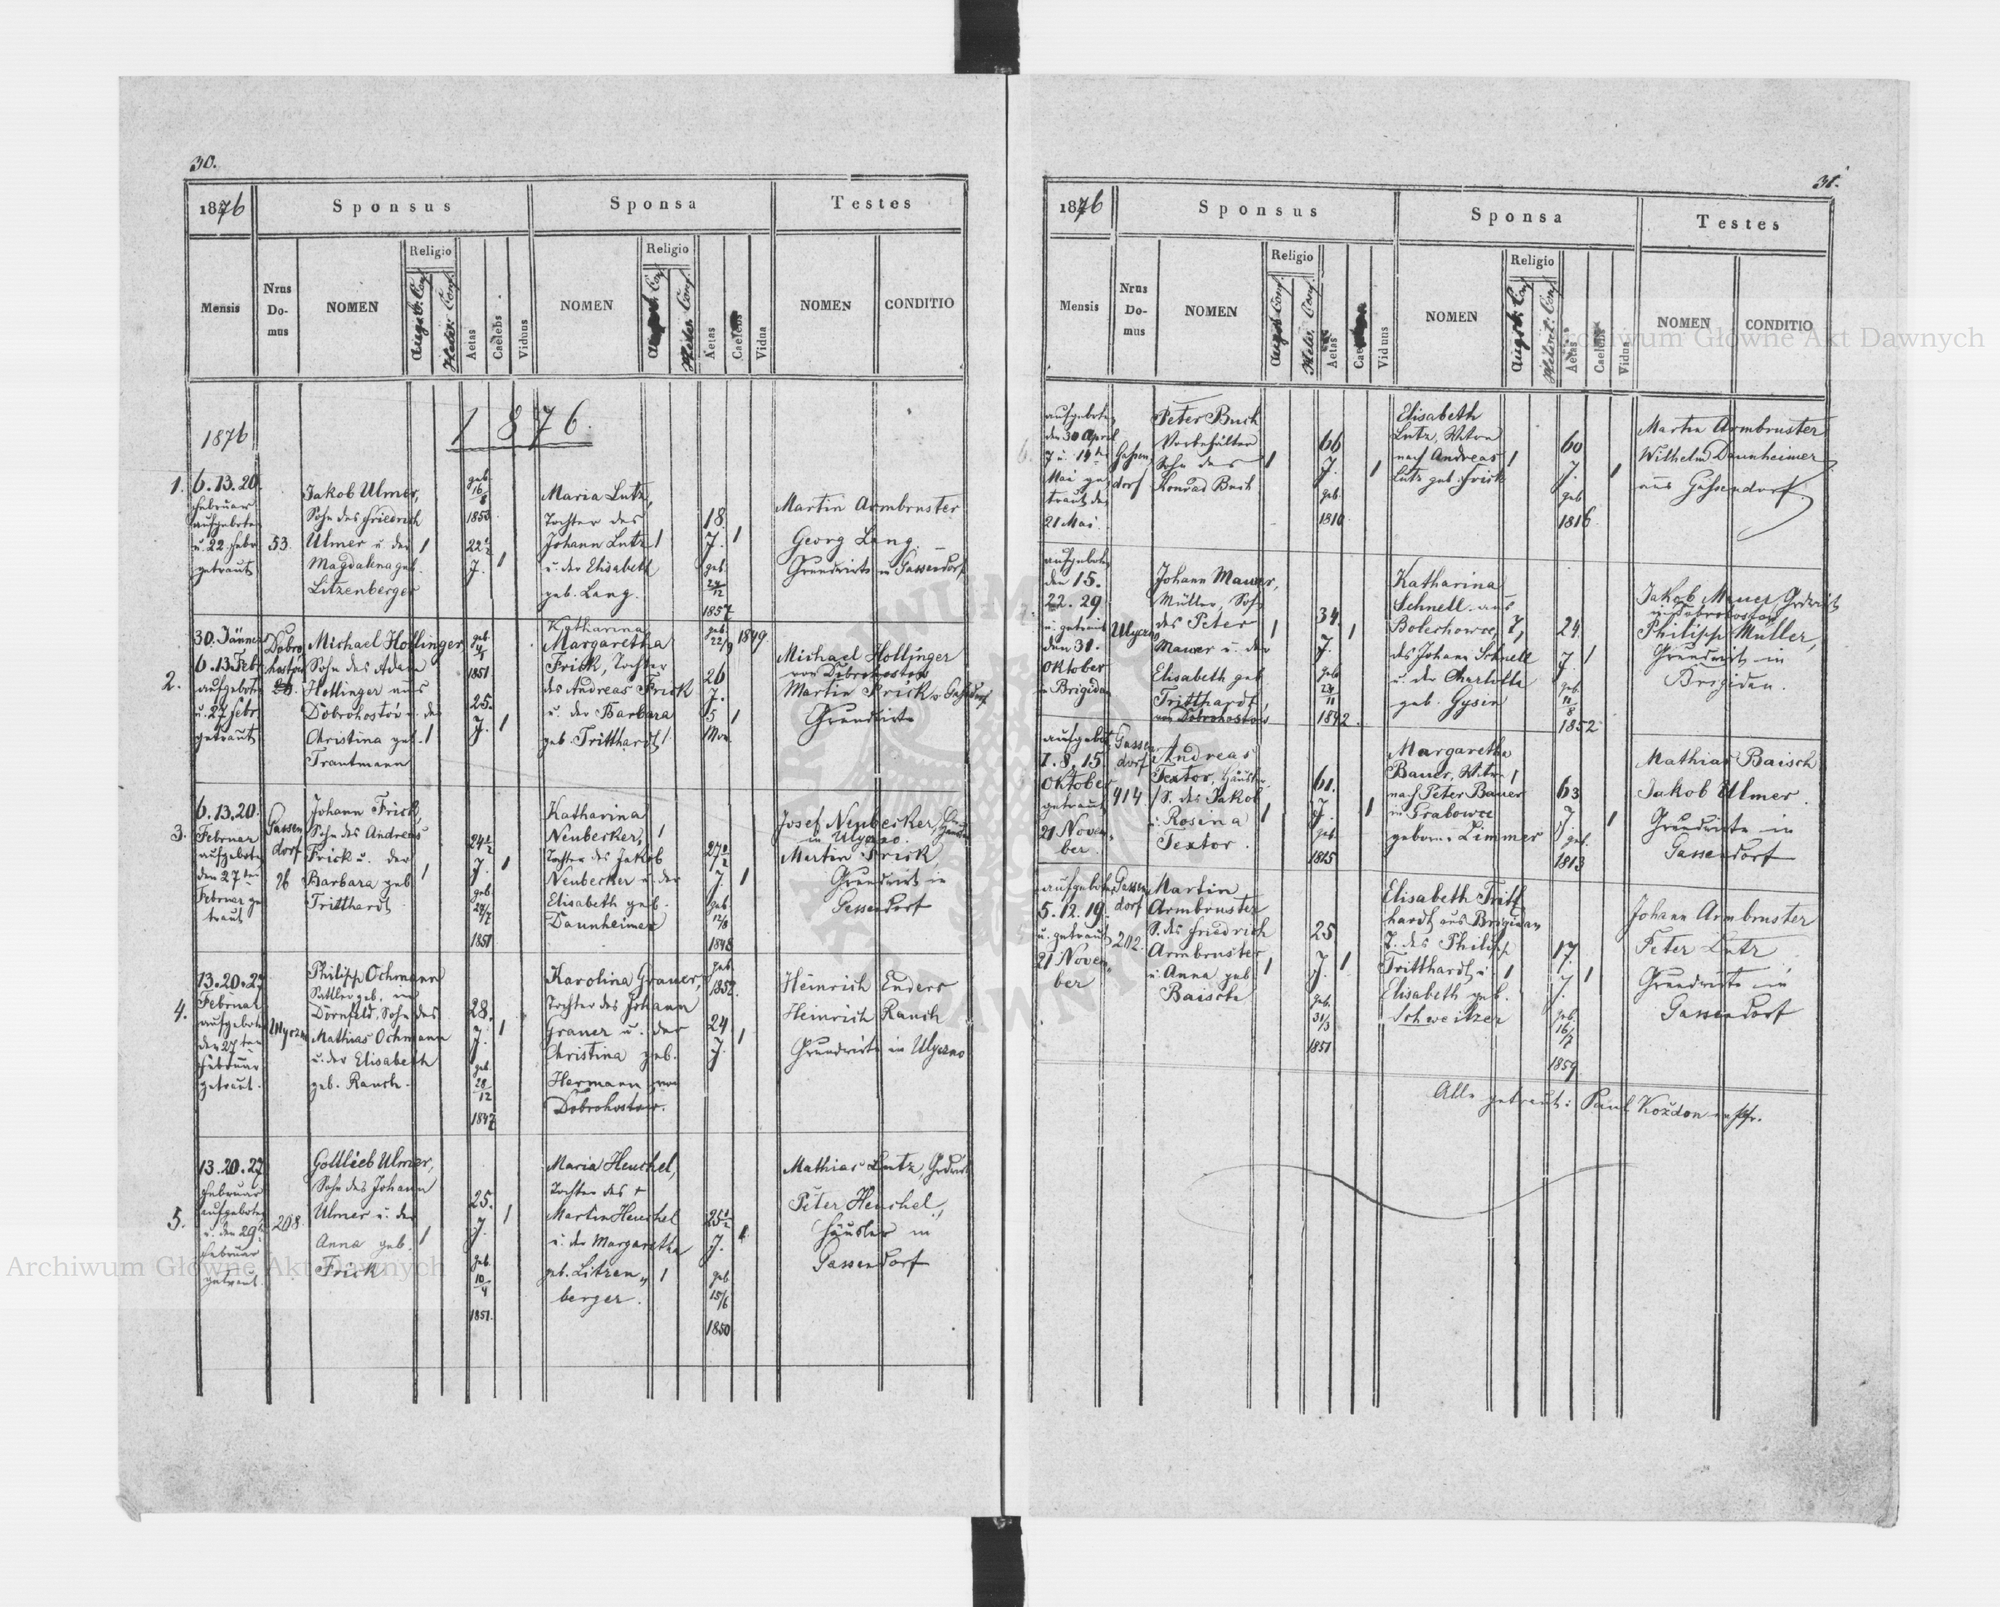 30.
1876
Sponsus
Sponsa
Testes
Mensis
Nrus Do-mus
NOMEN
Religio
Augsb. Conf.
Helv. Conf.
Aetas
Caelebs
Viduus
NOMEN
Religio
Helv. Conf.
Aetas
Caelebs
Vidua
NOMEN
CONDITIO
1876
1876.
1.
6. 13. 20
Februar
aufgeboten
u. 22. Febr
getraut
53.
Jakob Ulmer,
Sohn des Friedrich
Ulmer u. der
Magdalena geb.
Litzenberger
1
geb
16/8
1853
22 1/2
J.
1
Maria Lutz,
Tochter des
Johann Lutz
u. der Elisabeth
geb. Lang.
1
18.
J.
geb.
24/12
1857
1
Martin Armbruster
Georg Lang
Grundwirte in Gassendorf
2.
30. Jänner
6. 13. Feb
aufgeboten
u. 27 Febr.
getraut
Dobro
hostów
Michael Hollinger
Sohn des Adam
Hollinger aus
Dobrohostów u. der
Christina geb.
Trautmann
1
geb
1851
25.
J.
1
Katharina
Margaretha
Frick, Tochter
des Andreas Frick
u. der Barbara
geb. Tritthardt
1
geb.
22/9 1849
26
J.
5
Mon
1
Michael Hollinger
von Dobrohostow
Martin Frick v. Gassendorf
Grundwirte
3.
6. 13. 20.
Februar
aufgeboten
den 27ten
Februar ge
traut
Gassen
dorf
26
Johann Frick,
Sohn des Andreas
Frick u. der
Barbara geb
Tritthardt
1
24 1/2
J.
geb.
24/7
1851
1
Katharina
Neubecker,
Tochter des Jakob
Neubecker u. der
Elisabeth geb.
Daunheimer
1
27 1/2
J.
geb
12/8
1848
1
Josef Neubecker,
in Ulyczno.
Martin Frick
Grundwirt in
Gassendorf
4.
13. 20. 27
Februar
aufgeboten
den 27ten
Februar
getraut.
Ulyczno
Philipp Ochmann
Sattler geb. in
Dornfeld, Sohn des
Mathias Ochmann
u. der Elisabeth
geb. Rauch.
28.
J.
geb.
28/12
1847
1
Karolina Grauer,
Tochter des Johann
Grauer u. der
Christina geb.
Hermann von
Dobrohostow.
geb.
1852.
24
J.
1
Heinrich Enders
Heinrich Rauch
Grundwirte in Ulyczno
5.
13. 20. 27
Februar
aufgeboten
u. den 29
Februar
getraut.
208.
Gottlieb Ulmer,
Sohn des Johann
Ulmer u. der
Anna geb.
Frick
1
25.
J.
geb.
10/4
1851.
1
Maria Heuchel,
Tochter des †
Martin Heuchel
u. der Margaretha
geb. Litzen„
berger.
1
25 1/2
J.
geb
15/6
1850
1
Mathias Lutz, Grdwirt
Peter Heuchel,
Häusler in
Gassendorf
31.
1876
Sponsus
Sponsa
Testes
Mensis
Nrus Do-mus
NOMEN
Religio
Augsb. Conf.
Helv. Conf.
Aetas
Viduus
NOMEN
Religio
Augsb. Conf
Helvet. Conf.
Aetas
Caelebs
Vidua
NOMEN
CONDITIO
aufgeboten
den 30 April
7 u. 14te
Mai ge
traut den
21 Mai.
Gassen
dorf
Peter Buch
Vorbehälter
Sohn des
Konrad Buch
1
66
J.
geb.
1810
1
Elisabeth
Lutz, Witwe
nach Andreas
Lutz geb. Frick
1
60
J.
geb
1816.
1
Martin Armbruster
Wilhelm Daunheimer
aus Gassendorf
aufgeboten
den 15.
22. 29
u. getraut
den 31.
Oktober
in Brigidau
Ulyczno
Johann Mauer,
Müller, Sohn
des Peter
Mauer u. der
Elisabeth geb.
Tritthardt,
von Dobrohostow
1
34.
J.
geb
24/11
1842.
1
Katharina
Schnell aus
Bolechowce, T,
des Johann Schnell
u. der Charlotte
geb. Gysin
24.
J.
geb.
11/8
1852
1
Jakob Mauer, Grdwirt
in Dobrohostow
Philipp Müller,
Grundwirt in
Brigidau.
aufgeboten
1. 8. 15
Oktober
getraut
21 Novem-
ber
Gassen
dorf
414
Andreas
Textor, Häusler
S. des Jakob
u. Rosina
Textor.
1
61.
J.
geb.
1815
1
Margaretha
Bauer, Witwe
nach Peter Bauer
in Grabowce
geborne Zimmer
1
63
J
geb.
1813
1
Mathias Baisch
Jakob Ulmer.
Grundwirte in
Gassendorf
aufgeboten
5. 12. 19.
u. getraut
21 Novem„
ber
Gassen
dorf
202.
Martin
Armbruster
S. des Friedrich
Armbruster
u. Anna geb
Baisch
1
25
J.
geb.
31/3
1851
1
Elisabeth Tritt
hardt aus Brigidau
T. des Philipp
Tritthardt u.
Elisabeth geb.
Schweitzer
1
17.
J.
geb.
16/7
1859.
1
Johann Armbruster
Peter Lutz
Grundwirte in
Gassendorf
Alle getraut: Paul Koždon
Archiwum Główne Akt Dawnych
Archiwum Główne Akt Dawnych